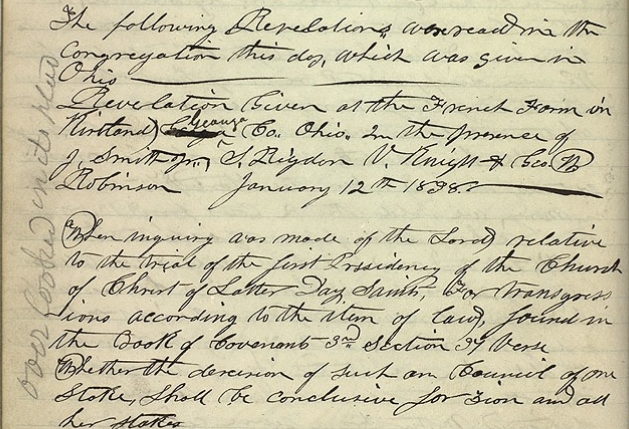 The following Revelations were read in the
congregation this day, which was given in
Ohio
Revelation Given at the French Farm in
Kirtland, Geauga Co. Ohio. In the presence of
J. Smith Jr., S. Rigdon V. Knight & Geo. W.
Robinson January 12th 1838.
When inquiry was made of the Lord relative
to the trial of the first Presidency of the Church
of Christ of Latter Day Saints, For transgress
ions according to the item of law, found in
the Book of Covenants 3rd Section 37 Verse
Whether the decision of such an Council of one
Stake, shall be conclusive for Zion and all
her stakes
over looked in its place